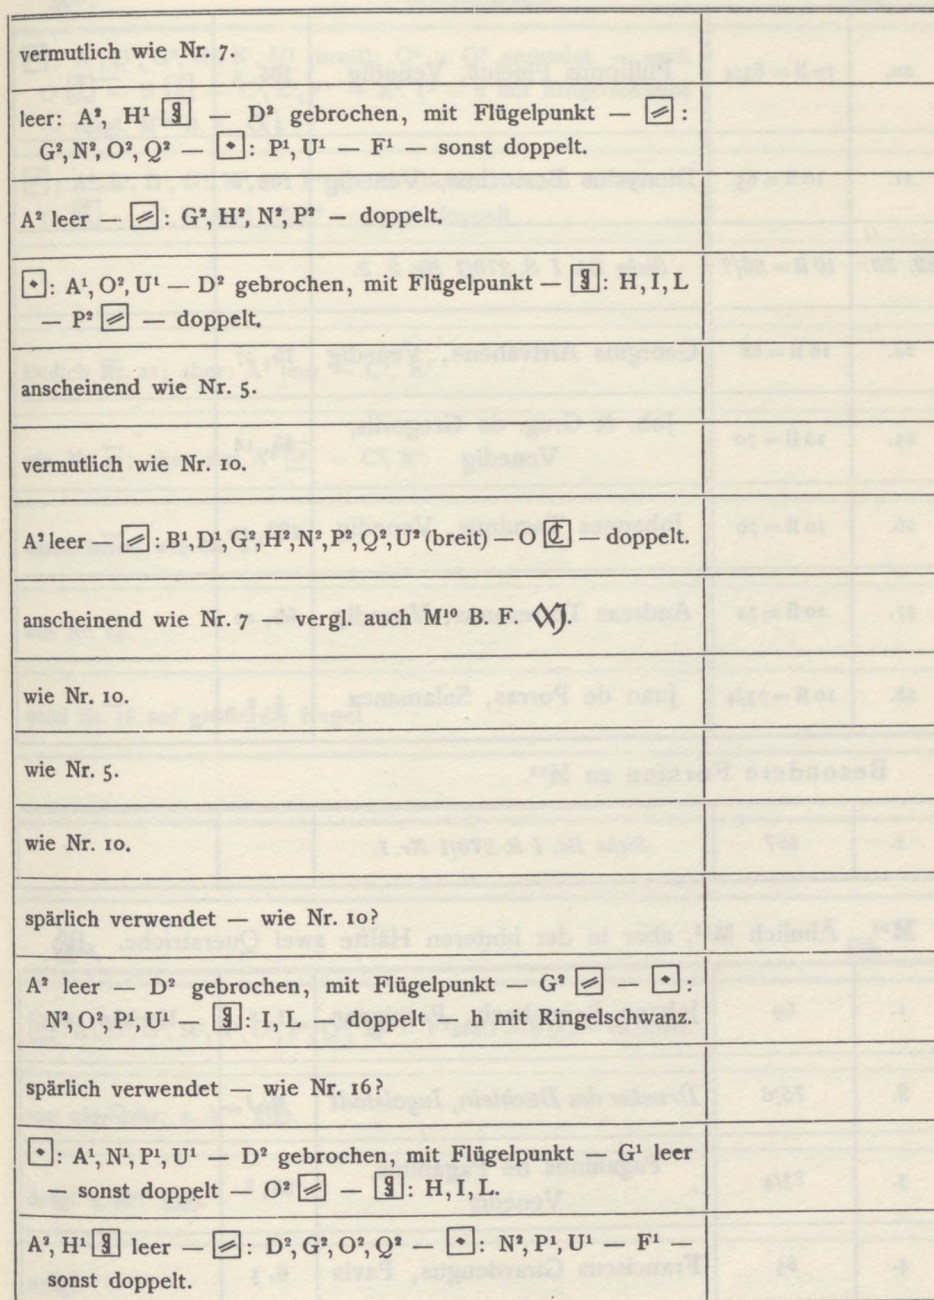 vermutlich wie Nr. 7.
leer: A², H¹ — D² gebrochen, mit Flügelpunkt — :
G², N², O², Q² — : P¹, U¹ — F¹ — sonst doppelt.
A² leer — : G², H², N², P² — doppelt.
: A¹, O², U¹ — D² gebrochen, mit Flügelpunkt — : H, I, L
— P² — doppelt.
anscheinend wie Nr. 5.
vermutlich wie Nr. 10.
A² leer — : B¹, D¹, G², H², N², P², Q², U² (breit) — O — doppelt.
anscheinend wie Nr. 7 — vergl. auch M¹⁰ B. F.
wie Nr. 10.
wie Nr. 5.
wie Nr. 10.
spärlich verwendet — wie Nr. 10?
A² leer — D² gebrochen, mit Flügelpunkt — G² — :
N², O², P¹, U¹ — : I, L — doppelt — h mit Ringelschwanz.
spärlich verwendet — wie Nr. 16?
: A¹, N¹, P¹, U¹ — D² gebrochen, mit Flügelpunkt — G¹ leer
— sonst doppelt — O² — : H, I, L.
A², H¹ leer — : D², G², O², Q² — : N², P¹, U¹ — F¹ —
sonst doppelt.